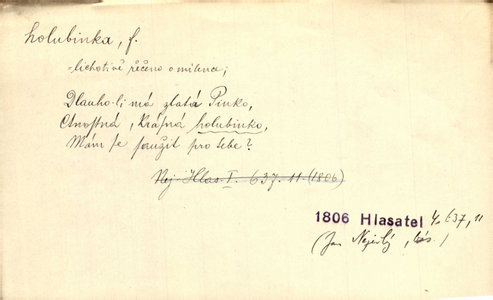 holubinka, f.
=lichotivě řečeno o milence;
Dlauho-li má zlatá Pinko,
Ctnostná, krásná holubinko,
Mám se saužit pro tebe?
Nej. Hlas. I. 637. 11 (1806)
1806 Hlasatel I. 637, 11
(Jan Nejedlý, bás.)